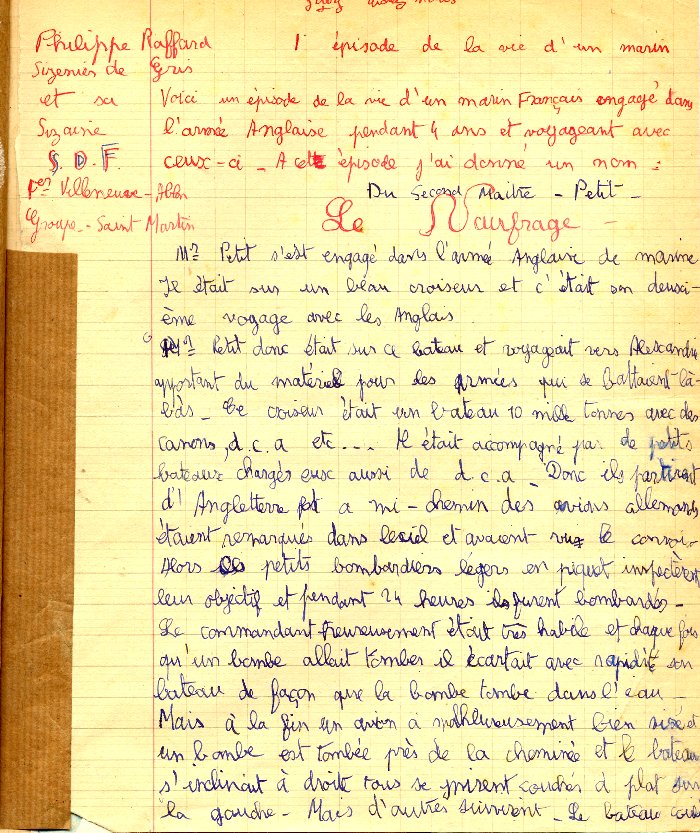 Philippe Raffard
Sizenier de Gris
et sa
Sizaine
S. D. F.
1er Villeneuve-Ablon
Groupe - Saint Martin
1 épisode de la vie d'un marin
Voici un épisode de la vie d'un marin Français engagé dans
l'armée Anglaise pendant 4 ans et voyageant avec
ceux-ci - A cet épisode j'ai donné un nom :
Du Second Maitre - Petit -
Le Naufrage -
Mr Petit s'est engagé dans l'armée Anglaise de marine
Il était sur un beau croiseur et c'était son deuxi-
ème voyage avec les Anglais
Mr Petit donc était sur ce bateau et voyageait vers Alexandrie
apportant du matériel pour les armées qui se battaient là-
bàs - Ce croiseur était un bateau 10 mille tonnes avec des
canons, d.c.a etc.... Il était accompagné par de petits
bateaux chargés eux aussi de d.c.a - Donc ils partirent
d'Angletterre et a mi-chemin des avions allemands
étaient remarqués dans le ciel et avaient vu le convoi-
Alors petits bombardiers légers en piquet inspectèrent
leur objectif et pendant 24 heures ils furent bombardés -
Le commandant heureusement était très habile et chaque fois
qu'un bombe allait tomber il écartait avec rapidité son
bateau de façon que la bombe tombe dans l'eau -
Mais à la fin un avion à malheureusement bien visé et
un bombe est tombée près de la cheminée et le bateau
s'inclinait à droite tous se mirent couchés à plat sur
la gauche - Mais d'autres suivirent - Le bateau